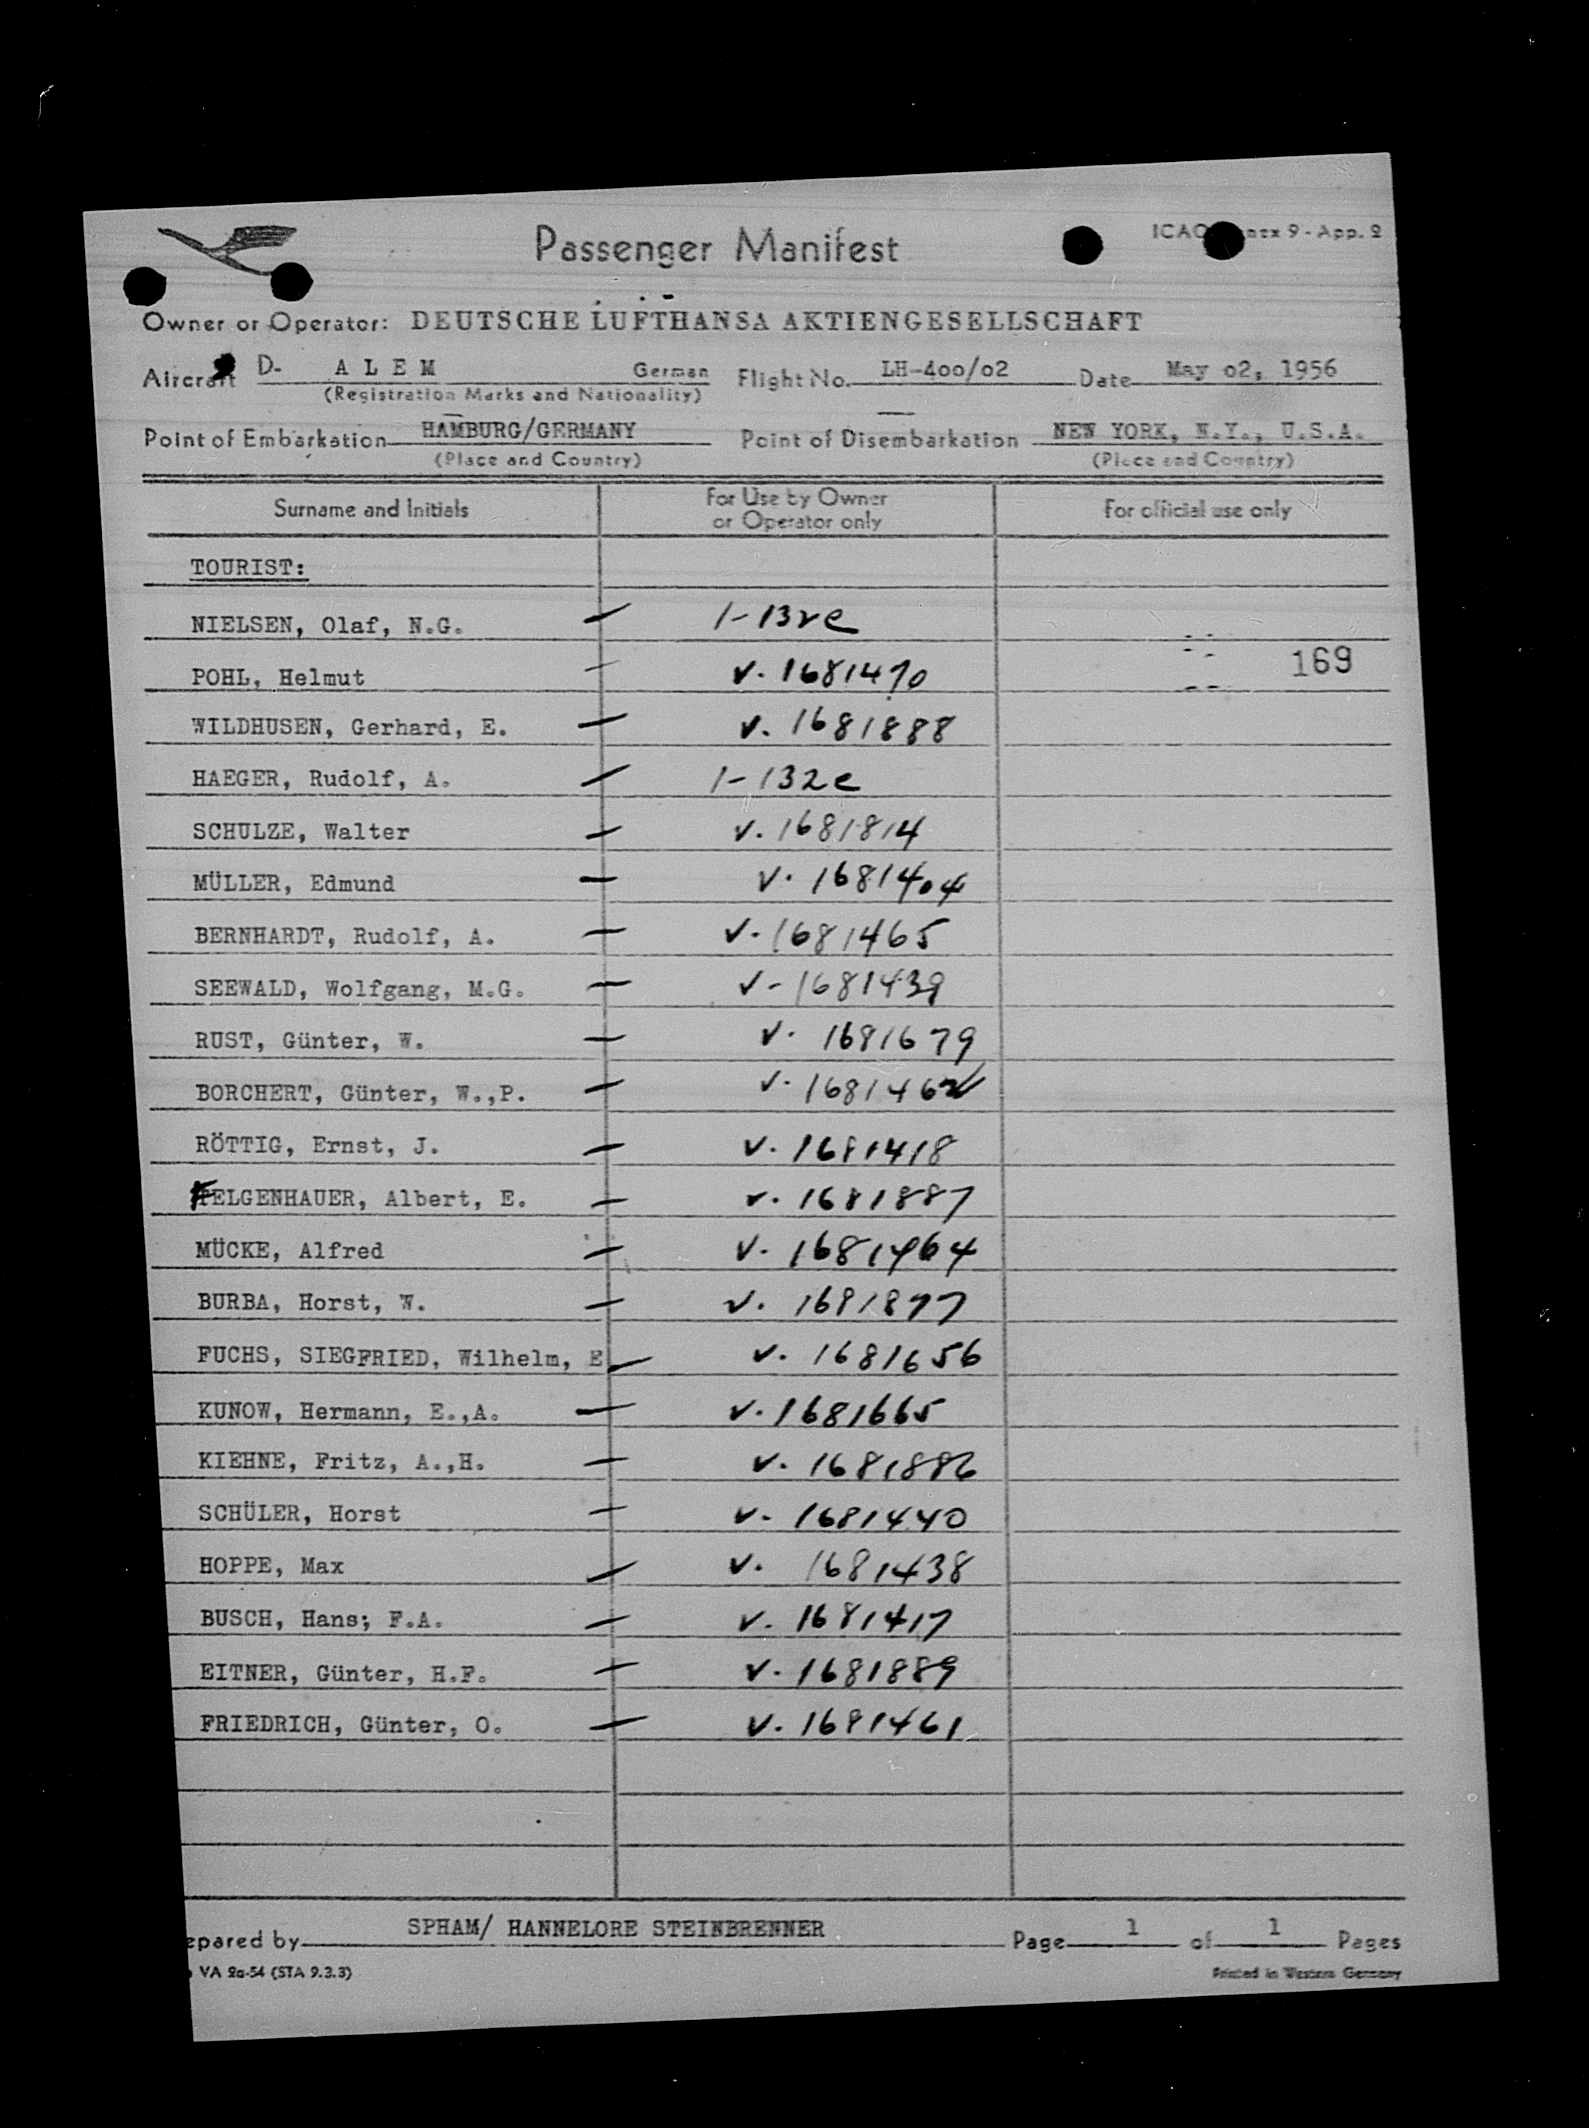 Passenger Manifest
ICAO Annex 9 - App. 2
Owner or Operator: DEUTSCHE LUFTHANSA AKTIENGESELLSCHAFT
Aircraft D- A L E M German Flight No. LH-400/02 Date May 02, 1956
(Registration Marks and Nationality)
Point of Embarkation HAMBURG/GERMANY Point of Disembarkation NEW YORK, N.Y., U.S.A.
(Place and Country) (Place and Country)
Surname and Initials For Use by Owner or Operator only For official use only
TOURIST:
NIELSEN, Olaf, N.G. — 1-132e
169
POHL, Helmut — v. 1681470
WILDHUSEN, Gerhard, E. — v. 1681888
HAEGER, Rudolf, A. — 1-132e
SCHULZE, Walter — v. 1681814
MÜLLER, Edmund — v. 1681404
BERNHARDT, Rudolf, A. — v. 1681465
SEEWALD, Wolfgang, M.G. — v- 1681439
RUST, Günter, W. — v. 1681679
BORCHERT, Günter, W.,P. — v.
RÖTTIG, Ernst, J. — v. 1681418
FELGENHAUER, Albert, E. — v. 1681887
MÜCKE, Alfred — v. 1681464
BURBA, Horst, W. — v. 1681877
FUCHS, SIEGFRIED, Wilhelm, E — v. 1681656
KUNOW, Hermann, E.,A. — v. 1681665
KIEHNE, Fritz, A.,H. — v. 1681886
SCHÜLER, Horst — v. 1681440
HOPPE, Max — v. 1681438
BUSCH, Hans; F.A. — v. 1681417
EITNER, Günter, H.F. — v. 1681889
FRIEDRICH, Günter, O. — v. 1681461
epared by SPHAM/ HANNELORE STEINBRENNER Page 1 of 1 Pages
VA 2a-54 (STA 9.3.3) Printed in Western Germany